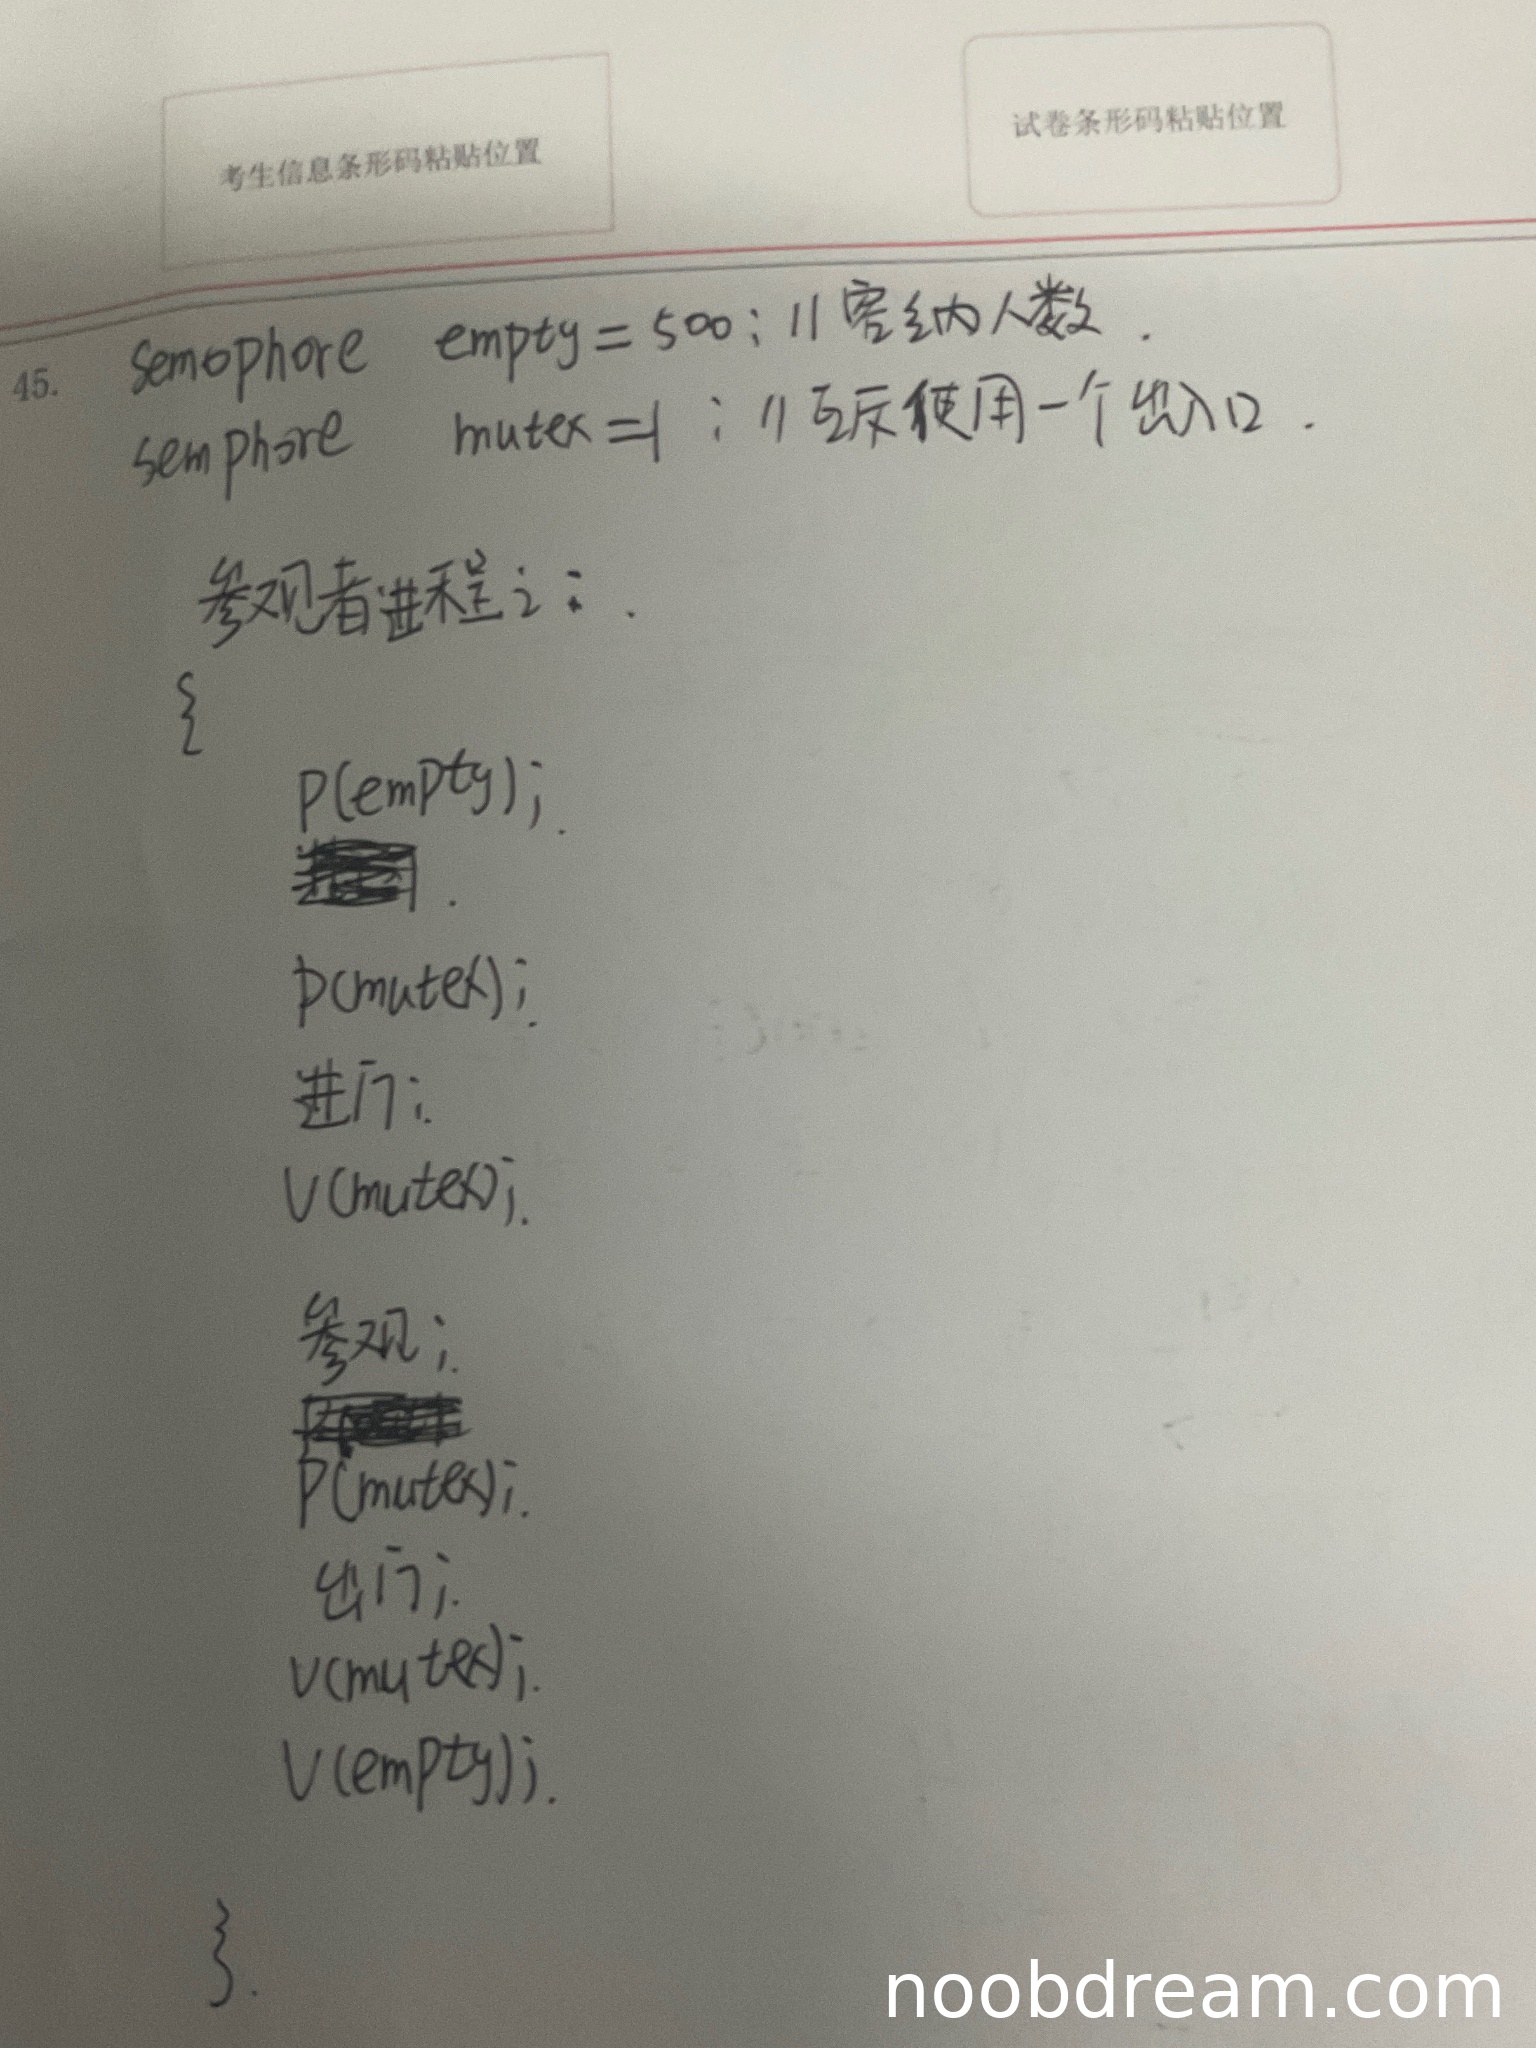 考生信息条形码粘贴位置
试卷条形码粘贴位置
45.
semophore empty = 500; // 容纳人数.
semphore mutex = 1; // 互斥使用一个出入口.
参观者进程i:.
{
P(empty);.
P(mutex);.
进门;.
V(mutex);.
参观;.
P(mutex);.
出门;.
V(mutex);.
V(empty);.
}.
noobdream.com